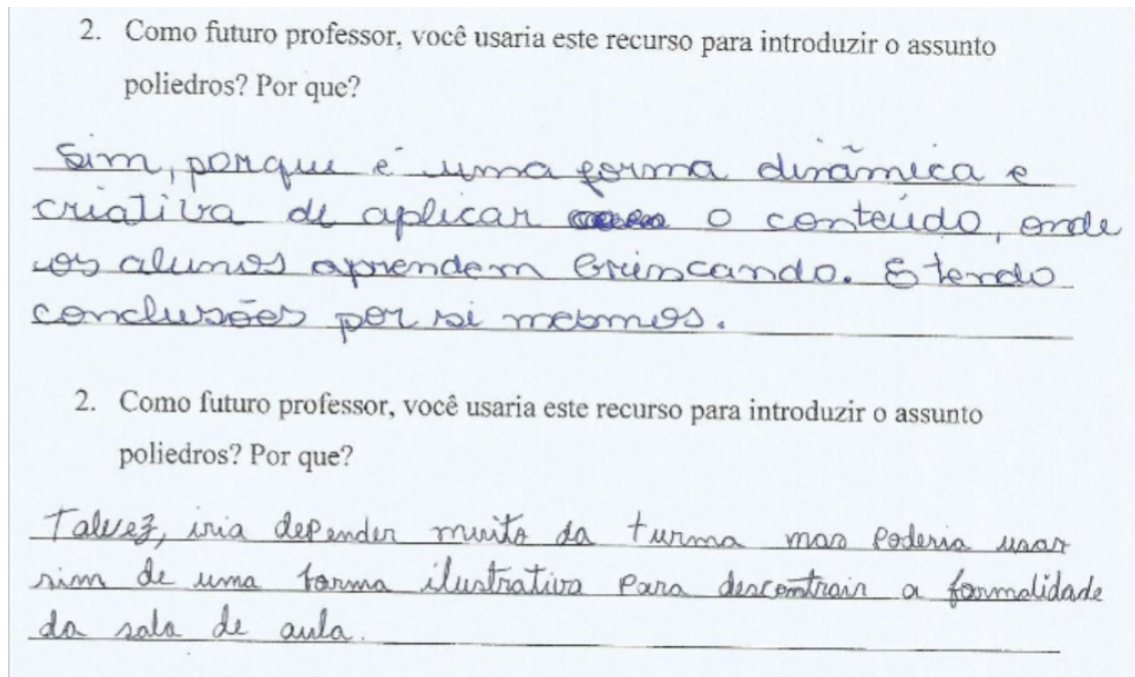 2. Como futuro professor, você usaria este recurso para introduzir o assunto
poliedros? Por que?
Sim, porque é uma forma dinâmica e
criativa de aplicar o conteúdo, onde
os alunos aprendem brincando. E tendo
conclusões por si mesmos.
2. Como futuro professor, você usaria este recurso para introduzir o assunto
poliedros? Por que?
Talvez, iria depender muito da turma mas poderia usar
sim de uma forma ilustrativa para descontrair a formalidade
da sala de aula.